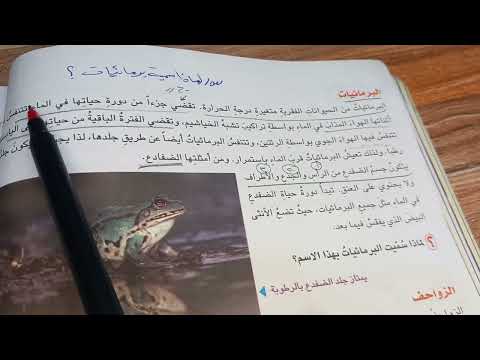 س/ لماذا سميت برمائيات ؟
البرمائيات
البرمائياتُ من الحيوانات الفقرية متغيرة درجة الحرارة. تقضّي جزءاً من دورةِ حياتها في الماء تتنفسُ
أثنائها الهواء المذاب في الماء بواسطة تراكيب تشبهُ الخياشيم، وتقضي الفترةُ الباقيةُ من حياتها
تتنفسُ فيها الهواءَ الجوي بواسطة الرئتين، وتتنفسُ البرمائياتُ أيضاً عن طريقِ جلدها، لذا يجبُ
رطباً. ولذلك تعيشُ البرمائياتُ قربَ الماءِ باستمرارٍ. ومن أمثلتها الضفادع.
يتكونُ جسمُ الضفدع من الرأس والجذع والأطراف
ولا يحتوي على العنق. تبدأ دورةُ حياة الضفدع
في الماء مثل جميع البرمائيات، حيثُ تضعُ الأنثى
البيض الذي يفقسُ فيما بعد.
؟ لماذا سُمّيت البرمائياتُ بهذا الاسم؟
يمتازُ جلد الضفدع بالرطوبة
الزواحف